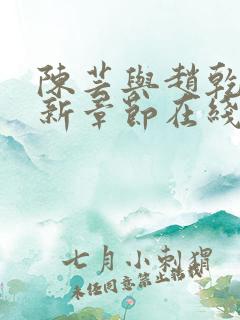 陳芸與趙乾
新章節在綫
七月小刺猬
未经同意禁止转载